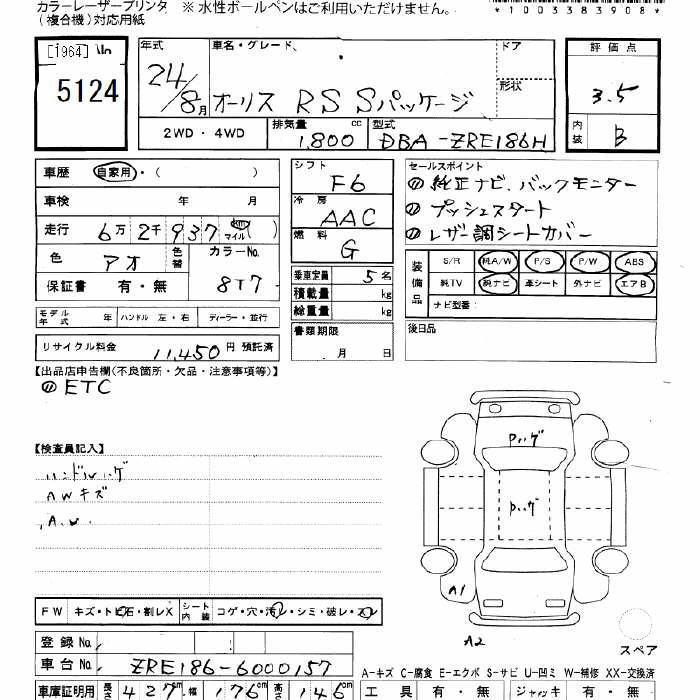 カラーレーザープリンタ ※水性ボールペンはご利用いただけません。
(複合機)対応用紙
*1003383908*
[1964]
5124
年式 24/8月
車名・グレード、 オーリス RS Sパッケージ
ドア
形状
評価点 3.5
内装 B
2WD・4WD
排気量 1,800 cc
型式 DBA-ZRE186H
車歴 自家用・( )
車検 年 月
走行 6万2千937 km マイル ( )
色 アオ 色替 カラーNo. 8T7
保証書 有・無
モデル年式 年 ハンドル 左・右 ディーラー・並行
リサイクル料金 11,450円 預託済
シフト F6
冷房 AAC
燃料 G
乗車定員 5名
積載量 kg
総重量 kg
書類期限
月 日
セールスポイント
純正ナビ、バックモニター
プッシュスタート
レザー調シートカバー
装備品
S/R 純A/W P/S P/W ABS
純TV 純ナビ 革シート 外ナビ エアB
ナビ型番:
後日品
【出品店申告欄(不良箇所・欠品・注意事項等)】
ETC
【検査員記入】
ハンドルハゲ
AWキズ
A.W.
Pハゲ
Pハゲ
A1
A2
スペア
FW キズ・トビ石・割レX シート内装 コゲ・穴・汚レ・シミ・破レ・スレ
登録No.
車台No. ZRE186-6000157
A-キズ C-腐食 E-エクボ S-サビ U-凹ミ W-補修 XX-交換済
車庫証明用 長さ 427cm 幅 176cm 高さ 146cm
工具 有・無 ジャッキ 有・無